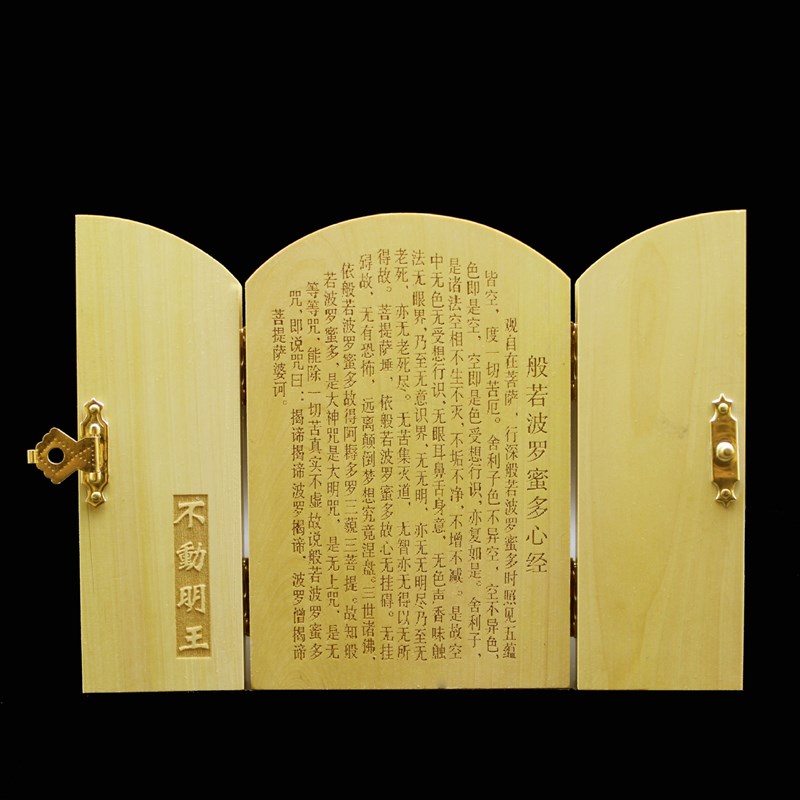 般若波罗蜜多心经
观自在菩萨，行深般若波罗蜜多时照见五蕴
皆空，度一切苦厄。舍利子色不异空，空不异色，
色即是空，空即是色受想行识，亦复如是。舍利子，
是诸法空相不生不灭，不垢不净，不增不减。是故空
中无色无受想行识、无眼耳鼻舌身意、无色声香味触
法无眼界，乃至无意识界、无无明，亦无无明尽乃至无
老死，亦无老死尽。无苦集灭道，无智亦无得以无所
得故。菩提萨埵，依般若波罗蜜多故心无挂碍。无挂
碍故，无有恐怖，远离颠倒梦想究竟涅盘。三世诸佛，
依般若波罗蜜多故得阿耨多罗三藐三菩提。故知般
若波罗蜜多，是大神咒是大明咒，是无上咒，是无
等等咒，能除一切苦真实不虚故说般若波罗蜜多
咒，即说咒曰：揭谛揭谛波罗揭谛，波罗僧揭谛
菩提萨婆诃。
不動明王